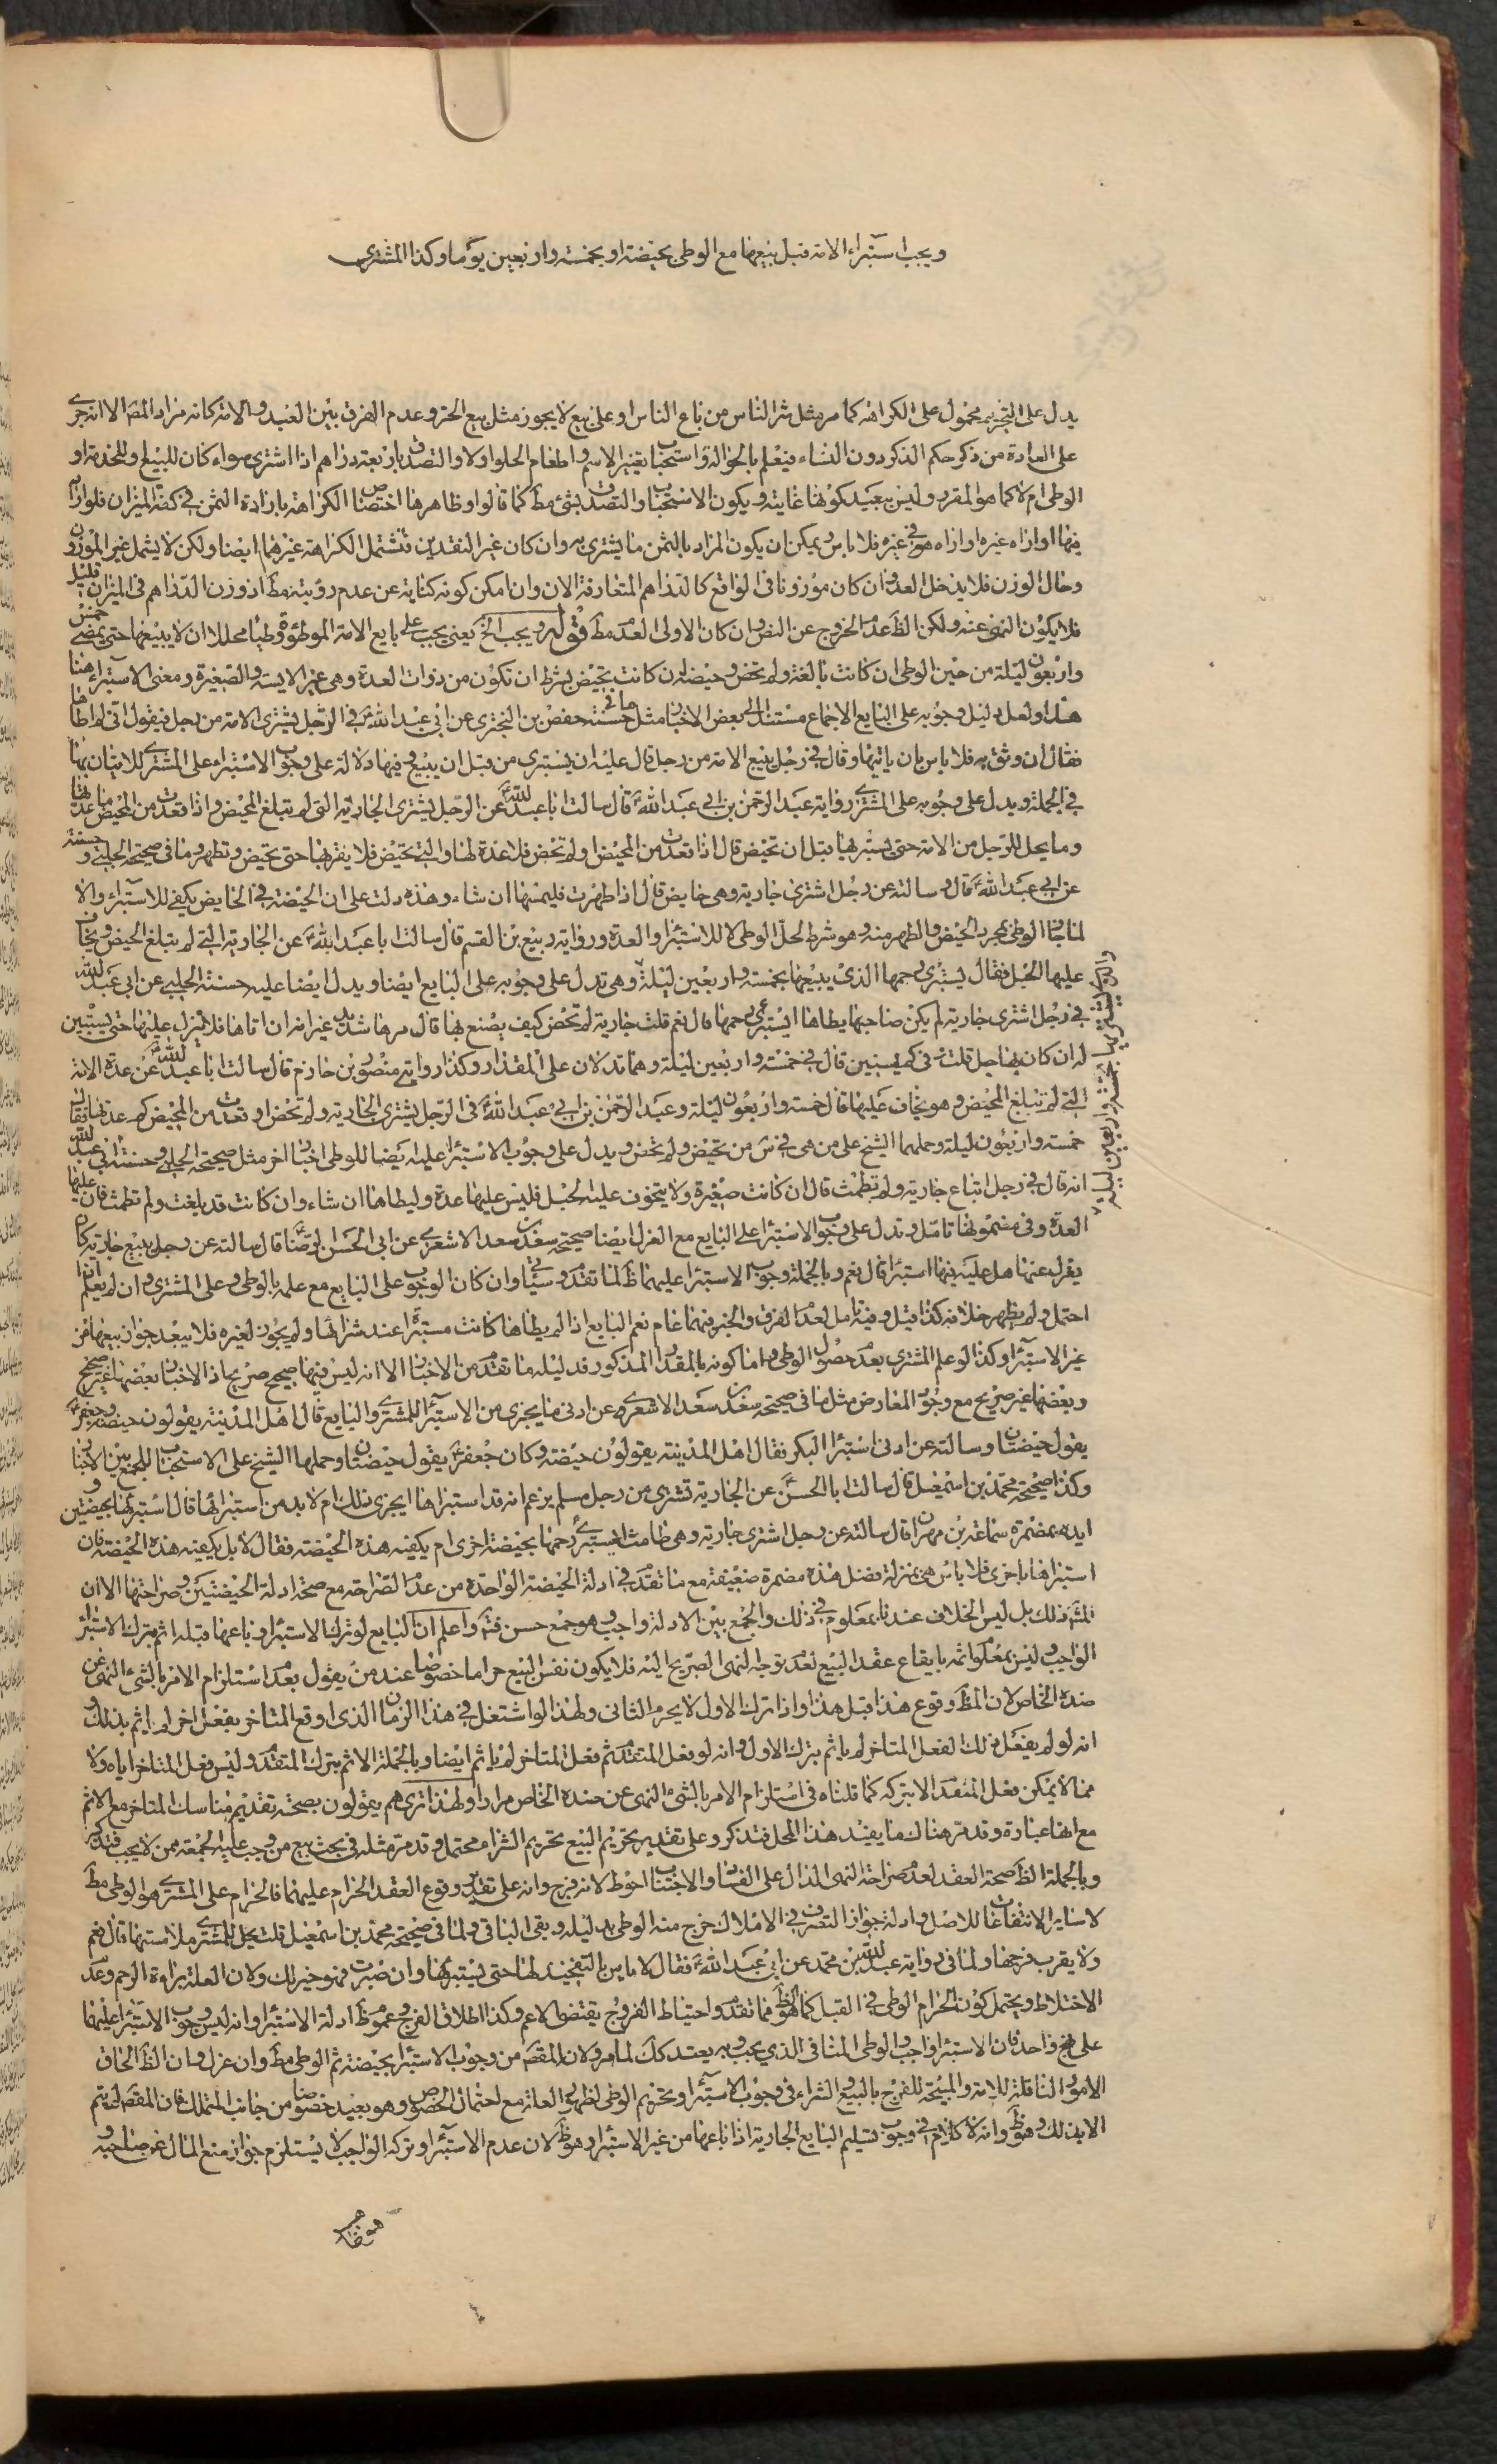 ويجب استبراء الامة قبل بيعها مع الوطى بحيضة او بخمسة واربعين يوما وكذا المشترى
يدل على التحريم محمول على الكراهة كما مر مثل شر الناس من باع الناس او على بيع لا يجوز مثل بيع الحر وعدم الفرق بين العبد والامة كانه مراد المصّ الا انه جرى
على العادة من ذكر حكم الذكر دون النساء فيعلم بالحوالة واستحباب تغيير الاسم واطعام الحلو اولا والتصدق باربعة دراهم اذا اشترى سواء كان للبيع او للخدمة او
الوطى ام لا كما هو المقرر وليس ببعيد كونها غاية ويكون الاستحباب والتصدق بشئ مطّ كما قالوا وظاهرها اختصاص الكراهة بارادة الثمن فى كفة الميزان فلو اراه
فيها او اراه غيره او اراه هو فى غيره فلا باس ويمكن ان يكون المراد بالثمن ما يشترى به وان كان غير النقدين فتشتمل الكراهة غيرهما ايضا ولكن لا يشمل غير الموزون
وحال الوزن فلا يدخل العد وان كان موزونا فى الواقع كالدراهم المتعارفة الان وان امكن كونه كناية عن عدم رؤيته مطّ اذ وزن الدراهم فى الميزان قليل
فلا يكون النهى عنه ولكن الظّ عدم الخروج عن النص وان كان الاولى العدم مطّ قوله ويجب الخ يعنى يجب على بايع الامة الموطوءة وطيا محللا ان لا يبيعها حتى يمضى خمس
واربعون ليلة من حين الوطى ان كانت بالغة ولم تحض وحيضة ان كانت تحيض بشرط ان تكون من ذوات العدة وهى غير الايسة والصغيرة ومعنى الاستبراء هنا
هذا ولعل دليل وجوبه على البايع الاجماع مستندا الى بعض الاخبار مثل ما فى حسنة حفص بن البخترى عن ابى عبد الله ع فى الرجل يشترى الامة من رجل فيقول انى لم اطاها
فقال ان وثق به فلا باس بان ياتيها وقال فى رجل يبيع الامة من رجل قال عليه ان يستبرى من قبل ان يبيع وفيها دلالة على وجوب الاستبراء على المشترى للاتيان بها
فى الجملة ويدل على وجوبه على المشترى رواية عبد الرحمن بن ابى عبد الله قال سالت ابا عبد الله ع عن الرجل يشترى الجارية التى لم تبلغ المحيض واذا قعدت من المحيض ما عدتها
وما يحل للرجل من الامة حتى يستبريها قبل ان تحيض قال اذا قعدت من المحيض او لم تحض فلا عدة لها والتى تحيض فلا يقربها حتى تحيض وتطهر وما فى صحيحة الحلبى وحسنته
عن ابى عبد الله ع قال وسالته عن رجل اشترى جارية وهى حايض قال اذا طهرت فليمسها ان شاء وهذه دلت على ان الحيضة فى الحايض يكفى للاستبراء والا
لما جاز الوطى بمجرد الحيض والطهر منه وهو شرط الحل الوطى لا للاستبراء والعدة ورواية ربيع بن القسم قال سالت ابا عبد الله ع عن الجارية التى لم تبلغ الحيض ويخاف
عليها الحبل فقال يستبرى رحمها الذى يبيعها بخمسة واربعين ليلة وهى تدل على وجوبه على البايع ايضا ويدل ايضا عليه حسنة الحلبى عن ابى عبد الله
والذى يشتريها بخمسة واربعين ليلة
فى رجل اشترى جارية لم يكن صاحبها يطاها ايستبرئ رحمها قال نعم قلت جارية لم تحض كيف يصنع بها قال مرها شديد غير انه ان اتاها فلا ينزل عليها حتى يستبين
له ان كان بها حبل قلت وفى كم يستبين قال فى خمسة واربعين ليلة وهما تدلان على المقدار وكذا رواية منصور بن حازم قال سالت ابا عبد الله ع عن عدة الامة
التى لم تبلغ المحيض وهو يخاف عليها قال خمسة واربعون ليلة وعبد الرحمن بن ابى عبد الله ع فى الرجل يشترى الجارية ولم تحض او قعدت من المحيض كم عدتها فقال
خمسة واربعون ليلة وحملهما الشيخ على من هى فى سن من تحيض ولم تحض ويدل على وجوب الاستبراء عليه ايضا للوطى اخبار اخر مثل صحيحة الحلبى وحسنته ابى عبد الله
انه قال فى رجل ابتاع جارية ولم تطمث قال ان كانت صغيرة ولا يتخوف عليها الحبل فليس عليها عدة وليطاها ان شاء وان كانت قد بلغت ولم تطمث فان عليها
العدة وفى مضمونها تامل وتدل على وجوب الاستبراء على البايع مع العزل ايضا صحيحة سعد بن سعد الاشعرى عن ابى الحسن الرضا ع قال سالته عن رجل يبيع جارية كان
يعزل عنها هل عليه فيها استبراء قال نعم وبالجملة وجوب الاستبراء عليهما ظّ لما تقدم وسيأتى وان كان الوجوب على البايع مع علمه بالوطى وعلى المشترى وان لم يعلم انما
احتمل ولم يظهر خلافه كذا قيل وفيه تامل لعدم الفرق والخبر فيهما عام نعم البايع اذا لم يطاها كانت مستبرأة عند شرائها ولم يجوز لغيره فلا يبعد جواز بيعها من
غير الاستبراء وكذا لو علم المشترى بعدم حصول الوطى واما كونه بالمقدار المذكور فدليله ما تقدم من الاخبار الا انه ليس فيها صحيح صريح اذ الاخبار بعضها غير صحيح
وبعضها غير صريح مع وجود المعارض مثل ما فى صحيحة سعد بن سعد الاشعرى عن ادنى ما يجزى من الاستبراء للمشترى والبايع قال اهل المدينة يقولون حيضة وجعفر ع
يقول حيضتان وسالته عن ادنى استبراء البكر فقال اهل المدينة يقولون حيضة وكان جعفر ع يقول حيضتان وحملها الشيخ على الاستحباب للجمع بين الاخبار
وكذا صحيحة محمد بن اسمعيل قال سالت ابا الحسن ع عن الجارية تشترى من رجل مسلم يزعم انه قد استبراها ايجزى ذلك ام لا بد من استبرائها قال استبرئها بحيضتين
ايده بمضمرة سماعة بن مهران قال سالته عن رجل اشترى جارية وهى طامث ايستبرئ رحمها بحيضة اخرى ام يكفيه هذه الحيضة فقال لا بل يكفيه هذه الحيضة فان
استبراها باخرى فلا باس هى بمنزلة فضل هذه مضمرة ضعيفة مع ما تقدم فى ادلة الحيضة الواحدة من عدم الصراحة مع صحة ادلة الحيضتين وصراحتها الا ان
ذلك بل ليس الخلاف عندنا بمعلوم فى ذلك والجمع بين الادلة واجب وهو جمع حسن فتم واعلم ان البايع لو ترك الاستبراء وباعها قبله اثم بترك الاستبراء
الواجب وليس بمعلوم اثمه بايقاع عقد البيع لعدم توجه النهى الصريح اليه فلا يكون نفس البيع حراما خصوصا عند من يقول بعدم استلزام الامر بالشئ النهى عن
ضده الخاص لان المطّ وقوع هذا قبل هذا واذا ترك الاول لا يحرم الثانى ولهذا لو اشتغل فى هذا الزمان الذى اوقع المتاخر بفعل اخر لم ياثم بذلك و
انه لو لم يفعل ذلك لفعل المتاخر لم ياثم بترك الاول وانه لو فعل المتقدم ثم فعل المتاخر لم ياثم ايضا وبالجملة الاثم بترك المتقدم وليس فعل المتاخر اياه ولا
مما لا يمكن فعل المتقدم الا بتركه كما قلناه فى استلزام الامر بالشئ النهى عن ضده الخاص مرارا ولهذا تراهم يقولون بصحة تقديم مناسك المتاخر مع الاثم
مع انها عبادة وقد مر هناك ما يفيد هذا المحل فتذكر وعلى تقدير تحريم البيع تحريم الشراء محتمل وقد مر مثله فى بحث بيع من وجب عليه الجمعة ممن لا يجب فتذكر
وبالجملة الظّ صحة العقد لعدم صراحة النهى الدال على الفساد والاجتناب احوط لانه فرج وانه على تقدير وقوع العقد الحرام عليهما فالحرام على المشترى هو الوطى مطّ
لا ساير الانتفاعات للاصل وادلة جواز التصرف فى الاملاك خرج منه الوطى بدليله وبقى الباقى ولما فى صحيحة محمد بن اسمعيل قلت يحل للمشترى ملامستها قال نعم
ولا يقرب فرجها ولما فى رواية عبد الله بن محمد عن ابى عبد الله ع فقال لا باس بالتفخيذ لها حتى يستبرئها وان صبرت فهو خير لك ولان العلة براءة الرحم وعدم
الاختلاط ويحتمل كون الحرام الوطى فى القبل كما هو الظّ مما تقدم واحتياط الفروج يقتضى الاعم وكذا اطلاق الفرج وعموم ادلة الاستبراء وانه ليس وجوب الاستبراء عليهما
على نهج واحد فان الاستبراء واجب والوطى المنافى الذى يجب به يعتد كك لما مر ولان المقصّ من وجوب الاستبراء بحيضة ثم الوطى مطّ وان عزل وان الظّ الحاق
الامور الناقلة للامة والمبيحة للفرج بالبيع والشراء فى وجوب الاستبراء وتحريم الوطى لظهور العلة مع احتمال الخصوص وهو بعيد خصوصا من جانب المتملك فان المقصّ لم يتم
الا بذلك وهو ظّ وانه لا كلام فى وجوب تسليم البايع الجارية اذا باعها من غير الاستبراء وهو ظّ لان عدم الاستبراء وتركه الواجب لا يستلزم جواز منع المال عن صاحبه و
هو ظاهر